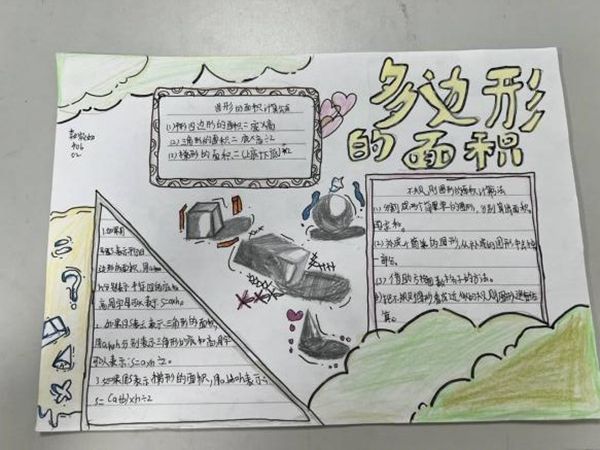 多边形
的面积
图形的面积计算公式
(1)平行四边形的面积=底×高
(2)三角形的面积=底×高÷2
(3)梯形的面积=(上底+下底)
不规则图形的面积计算法
(1)分割成两个简单的图形,分别算出面积,
再求和。
(2)补成一个简单的图形,从补成的图形中去掉
一部分。
(3)借助方格图数格子的方法。
1.如果用
S表示平行四
边形的面积,用a和
h分别表示平行四边形的底和
高,用字母可以表示:S=ah。
2.如果用S表示三角形的面积,
用a和h分别表示三角形的底和高,用字
可以表示:S=a×h÷2。
3.如果用S表示梯形的面积,用a,b,h表示
S=(a+b)×h÷2